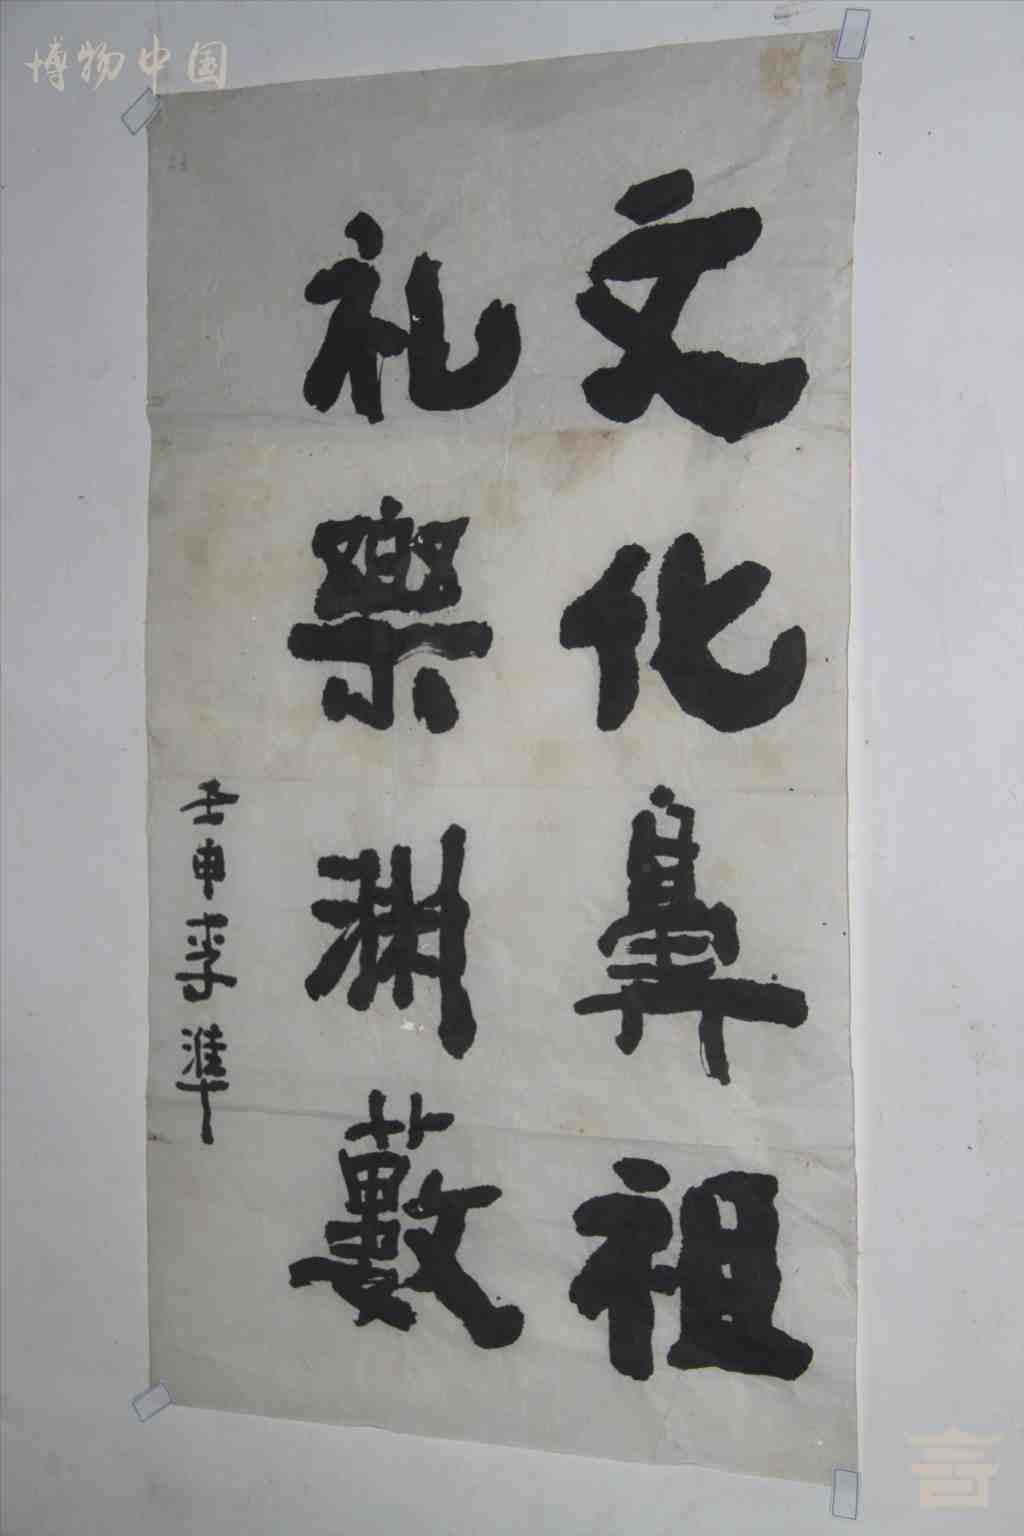 博物中国
文化鼻祖
礼樂渊薮
壬申李準